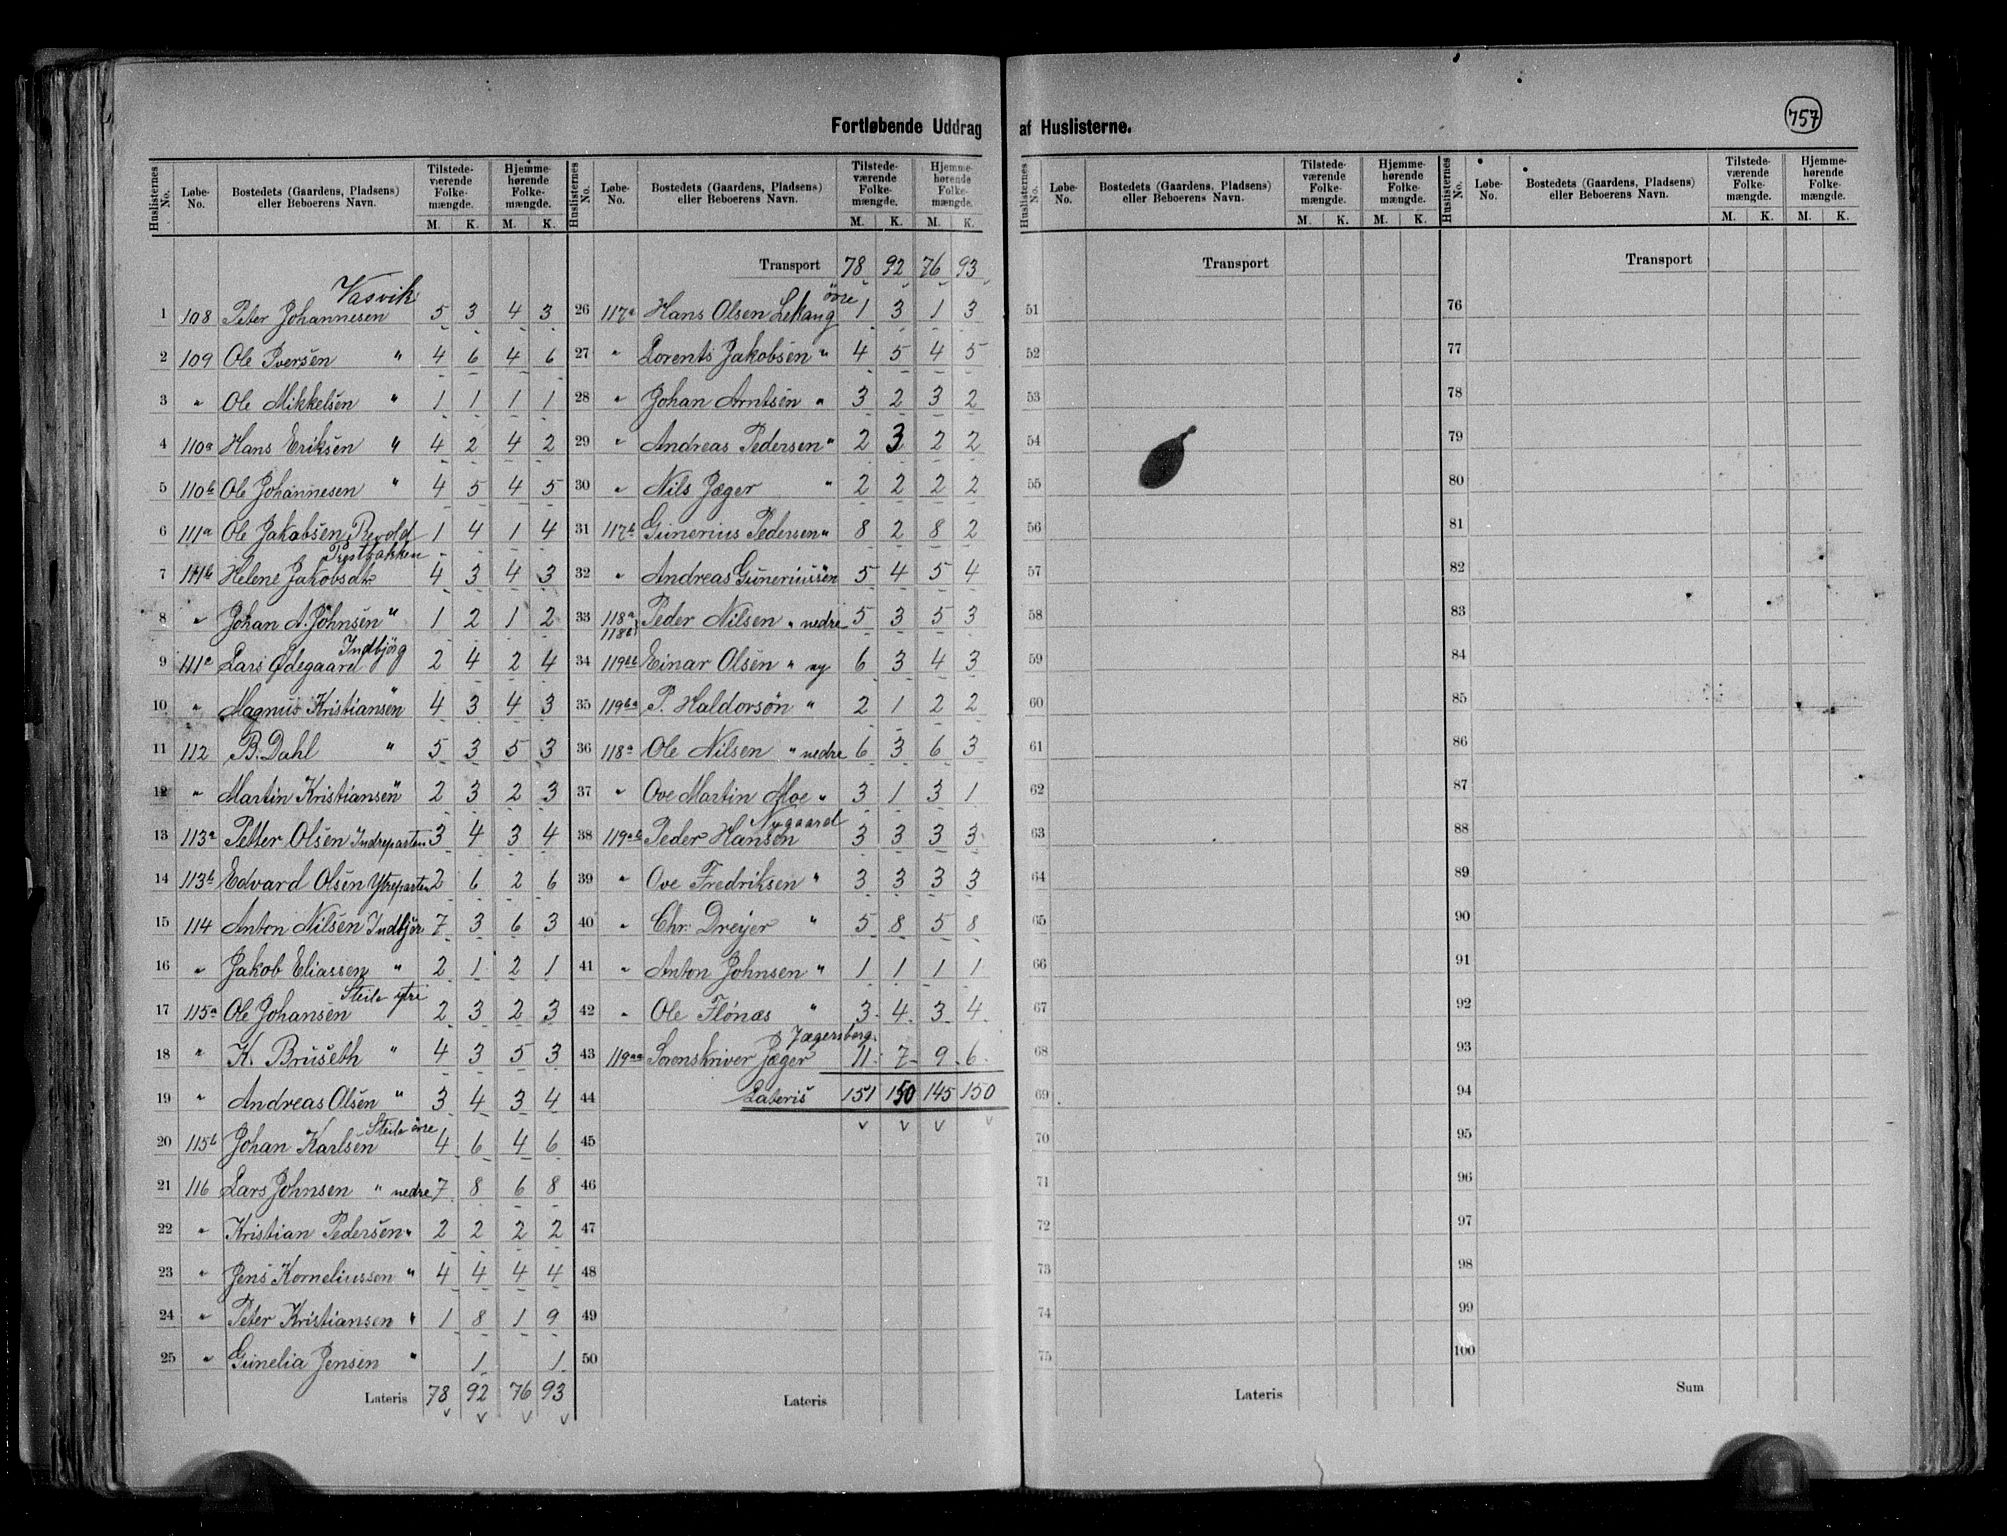 757
Fortløbende Uddrag af Huslisterne.
Huslisternes No. Løbe-No. Bostedets (Gaardens, Pladsens) eller Beboerens Navn. Tilstedeværende Folkemængde. M. K. Hjemmehørende Folkemængde. M. K.
Vasvik
1 108 Peter Johannesen 5 3 4 3
2 109 Ole Iversen " 4 6 4 6
3 " Ole Mikkelsen " 1 1 1 1
4 110a Hans Eriksen " 4 2 4 2
5 110b Ole Johannesen " 4 5 4 5
6 111a Ole Jakobsen Prevold 1 4 1 4
Prestbakken
7 111b Helene Jakobsdtr 4 3 4 3
8 " Johan A. Johnsen " 1 2 1 2
Indbjörg
9 111c Lars Ødegaard 2 4 2 4
10 " Magnus Kristiansen " 4 3 4 3
11 112 B. Dahl " 5 3 5 3
12 " Martin Kristiansen " 2 3 2 3
13 113a Petter Olsen Indreparten 3 4 3 4
14 113b Edvard Olsen Ytreparten 2 6 2 6
15 114 Anton Nilsen Indbjør 7 3 6 3
16 " Jakob Eliassen " 2 1 2 1
Steile ytri
17 115a Ole Johansen 2 3 2 3
18 " K. Bruseth " 4 3 5 3
19 " Andreas Olsen " 3 4 3 4
Steile öre
20 115b Johan Karlsen 4 6 4 6
21 116 Lars Johnsen " nedre 7 8 6 8
22 " Kristian Pedersen " 2 2 2 2
23 " Jens Korneliussen " 4 4 4 4
24 " Peter Kristiansen " 1 8 1 9
25 " Gunelia Jensen " 1 1
Lateris 78 92 76 93
Huslisternes No. Løbe-No. Bostedets (Gaardens, Pladsens) eller Beboerens Navn. Tilstedeværende Folkemængde. M. K. Hjemmehørende Folkemængde. M. K.
Transport 78 92 76 93
öre
26 117a Hans Olsen Lekang 1 3 1 3
27 " Lorents Jakobsen " 4 5 4 5
28 " Johan Arntsen " 3 2 3 2
29 " Andreas Pedersen " 2 3 2 2
30 " Nils Jæger " 2 2 2 2
31 117b Gunerius Pedersen " 8 2 8 2
32 " Andreas Guneriussen 5 4 5 4
33 118a 118b Peder Nilsen " nedre 5 3 5 3
34 119bb Einar Olsen " ny 6 3 4 3
35 119ba P. Haldorsøn " 2 1 2 2
36 118a Ole Nilsen " nedre 6 3 6 3
37 " Ove Martin Moe " 3 1 3 1
Nygaard
38 119ab Peder Hansen 3 3 3 3
39 " Ove Fredriksen " 3 3 3 3
40 " Chr. Dreyer " 5 8 5 8
41 " Anton Johnsen " 1 1 1 1
42 " Ole Flönæs " 3 4 3 4
Jægersborg.
43 119aa Sorenskriver Jæger 11 7 9 6
44 Lateris 151 150 145 150
45
46
47
48
49
50
Lateris
Huslisternes No. Løbe-No. Bostedets (Gaarden, Pladsens) eller Beboerens Navn. Tilstedeværende Folkemængde. M. K. Hjemmehørende Folkemængde. M. K.
Transport
51
52
53
54
55
56
57
58
59
60
61
62
63
64
65
66
67
68
69
70
71
72
73
74
75
Lateris
Huslisternes No. Løbe-No. Bostedets (Gaardens, Pladsens) eller Beboerens Navn. Tilstedeværende Folkemængde. M. K. Hjemmehørende Folkemængde. M. K.
Transport
76
77
78
79
80
81
82
83
84
85
86
87
88
89
90
91
92
93
94
95
96
97
98
99
100
Sum